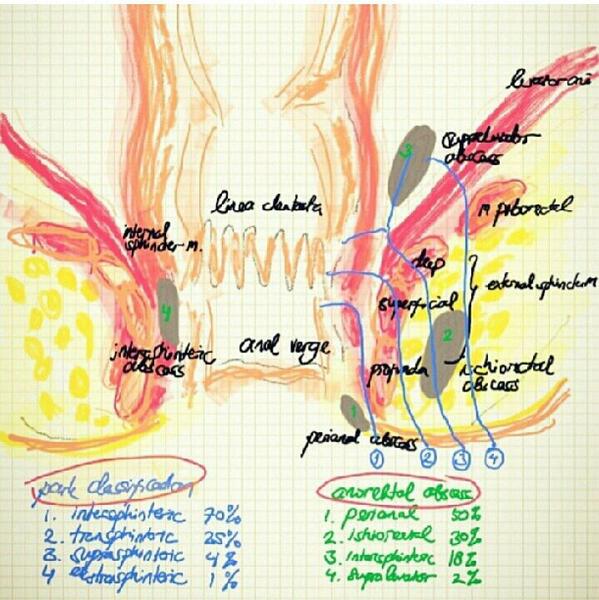 levator ani
3
supralevator
abscess
linea dentata
m puborectal
internal
sphincter m.
deep
external sphincter m
superficial
4
2
intersphinteric
abscess
anal verge
profunda
ischiorectal
abscess
1
perianal abscess
1 2 3 4
park classification
1. intersphinteric 70%
2. transphinteric 25%
3. suprasphinteric 4%
4 extrasphinteric 1%
anorektal abscess
1. perianal 50%
2. ishiorectal 30%
3. intersphinterc 18%
4. supralevator 2%